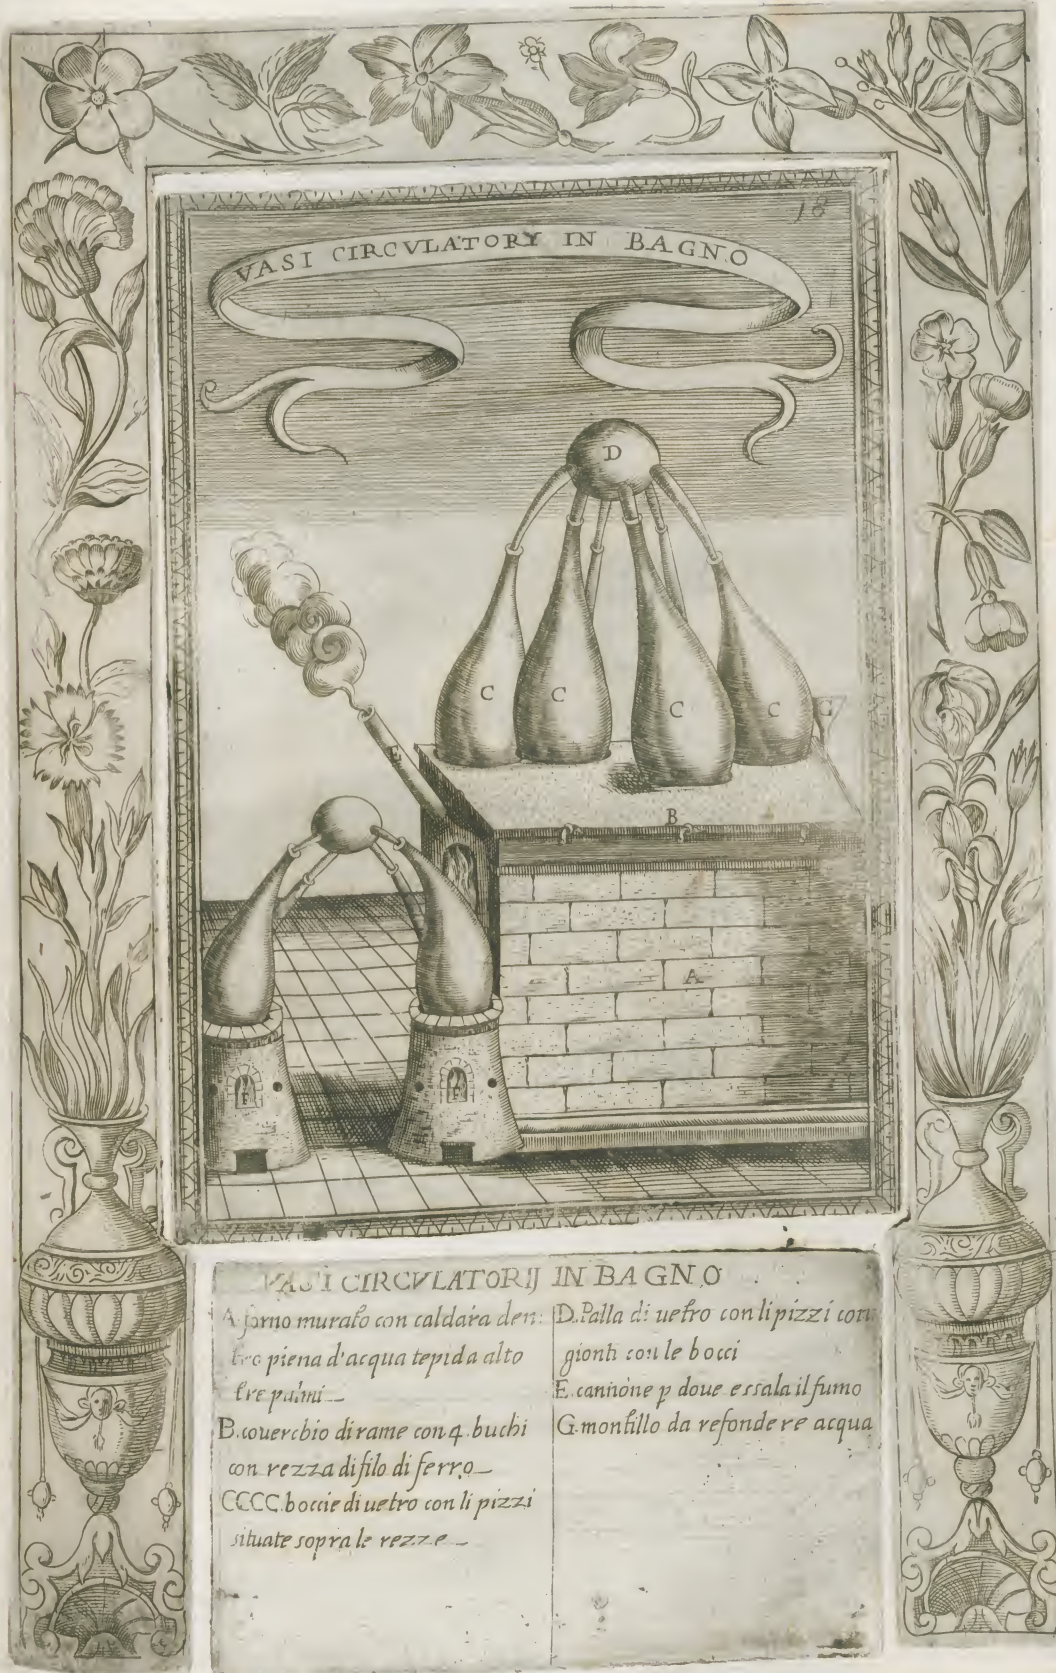 18
VASI CIRCVLATORY IN BAGNO
D
C C C C G
E
B
A
F F
VASI CIRCVLATORIJ IN BAGNO
A forno murato con caldara den:
tro piena d'acqua tepida alto
tre palmi
B. couerchio di rame con 4. buchi
con rezza di filo di ferro
CCCC. boccie di uetro con li pizzi
situate sopra le rezze
D. Palla di uetro con li pizzi con
gionti con le bocci
E. cannone p doue essala il fumo
G. montillo da refondere acqua